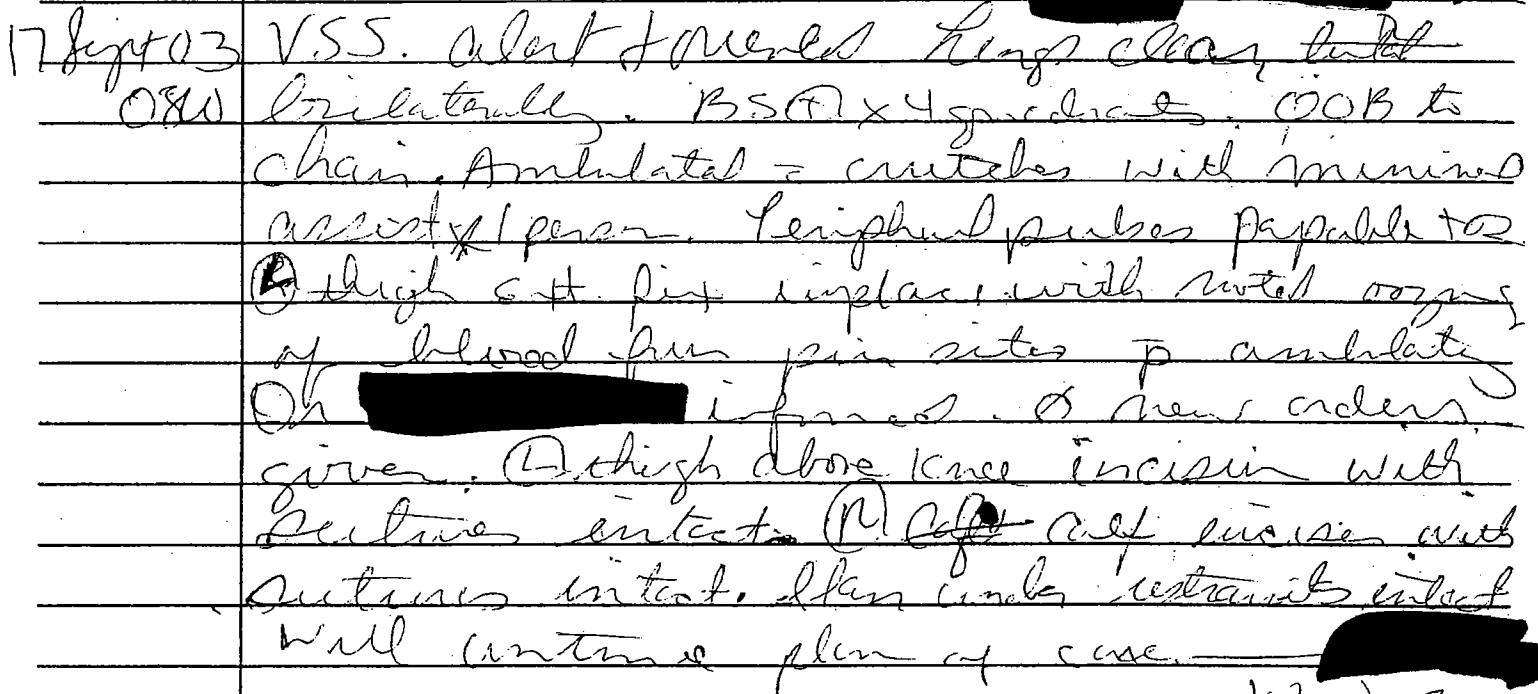 17 Sept 03 VSS. alert + oriented lungs clear
bilaterally. BS (+) x 4 quadrants. OOB to
chair. Ambulated = crutches with minimal
assist x 1 person. Peripheral pulses papable +2
(L) thigh ext. fix inplace with noted oozing
of blood from pin sites p ambulating
Dr informed. Ø new orders
given. (L) thigh above knee incision with
sutures intact. (R) calf incision with
sutures intact. restraints intact
Will continue plan of care.